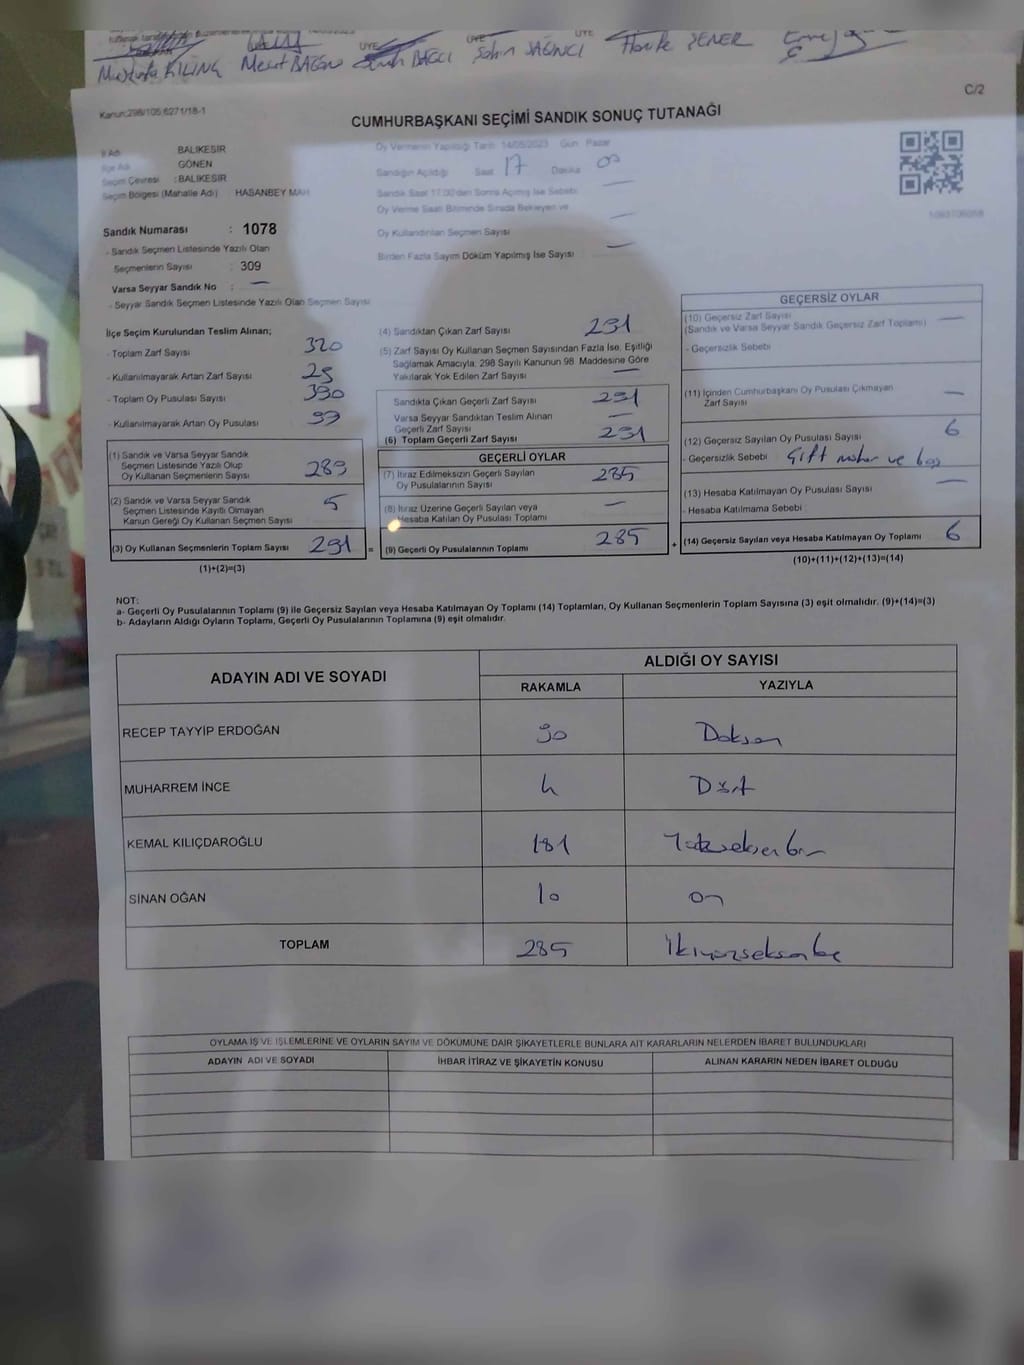 Mustafa KILINÇ
ÜYE
ÜYE
ÜYE
Şahin SAĞINCI
C/2
Kanun:298/105;6271/18-1
CUMHURBAŞKANI SEÇİMİ SANDIK SONUÇ TUTANAĞI
İl Adı BALIKESİR
İlçe Adı GÖNEN
Seçim Çevresi : BALIKESİR
Seçim Bölgesi (Mahalle Adı) HASANBEY MAH
Sandık Numarası : 1078
- Sandık Seçmen Listesinde Yazılı Olan
Seçmenlerin Sayısı : 309
Varsa Seyyar Sandık No : —
- Seyyar Sandık Seçmen Listesinde Yazılı Olan Seçmen Sayısı
Oy Vermenin Yapıldığı Tarih 14/05/2023 Gün Pazar
Sandığın Açıldığı Saat 17 Dakika 00
Sandık Saat 17:00'den Sonra Açılmış İse Sebebi —
Oy Verme Saati Bitiminde Sırada Bekleyen ve
Oy Kullandırılan Seçmen Sayısı —
Birden Fazla Sayım Döküm Yapılmış İse Sayısı —
İlçe Seçim Kurulundan Teslim Alınan;
- Toplam Zarf Sayısı 320
- Kullanılmayarak Artan Zarf Sayısı 29
- Toplam Oy Pusulası Sayısı 390
- Kullanılmayarak Artan Oy Pusulası 99
(1) Sandık ve Varsa Seyyar Sandık
Seçmen Listesinde Yazılı Olup
Oy Kullanan Seçmenlerin Sayısı 289
(2) Sandık ve Varsa Seyyar Sandık
Seçmen Listesinde Kayıtlı Olmayan
Kanun Gereği Oy Kullanan Seçmen Sayısı 5
(3) Oy Kullanan Seçmenlerin Toplam Sayısı 291 =
(1)+(2)=(3)
(4) Sandıktan Çıkan Zarf Sayısı 291
(5) Zarf Sayısı Oy Kullanan Seçmen Sayısından Fazla İse, Eşitliği
Sağlamak Amacıyla, 298 Sayılı Kanunun 98. Maddesine Göre
Yakılarak Yok Edilen Zarf Sayısı —
Sandıkta Çıkan Geçerli Zarf Sayısı 291
Varsa Seyyar Sandıktan Teslim Alınan
Geçerli Zarf Sayısı —
(6) Toplam Geçerli Zarf Sayısı 291
GEÇERLİ OYLAR
(7) İtiraz Edilmeksizin Geçerli Sayılan
Oy Pusulalarının Sayısı 285
(8) İtiraz Üzerine Geçerli Sayılan veya
Hesaba Katılan Oy Pusulası Toplamı —
(9) Geçerli Oy Pusulalarının Toplamı 285 +
GEÇERSİZ OYLAR
(10) Geçersiz Zarf Sayısı —
(Sandık ve Varsa Seyyar Sandık Geçersiz Zarf Toplamı)
- Geçersizlik Sebebi
(11) İçinden Cumhurbaşkanı Oy Pusulası Çıkmayan
Zarf Sayısı —
(12) Geçersiz Sayılan Oy Pusulası Sayısı 6
- Geçersizlik Sebebi Çift mühür ve boş
(13) Hesaba Katılmayan Oy Pusulası Sayısı —
- Hesaba Katılmama Sebebi
(14) Geçersiz Sayılan veya Hesaba Katılmayan Oy Toplamı 6
(10)+(11)+(12)+(13)=(14)
NOT:
a- Geçerli Oy Pusulalarının Toplamı (9) ile Geçersiz Sayılan veya Hesaba Katılmayan Oy Toplamı (14) Toplamları, Oy Kullanan Seçmenlerin Toplam Sayısına (3) eşit olmalıdır. (9)+(14)=(3)
b- Adayların Aldığı Oyların Toplamı, Geçerli Oy Pusulalarının Toplamına (9) eşit olmalıdır.
ADAYIN ADI VE SOYADI ALDIĞI OY SAYISI
RAKAMLA YAZIYLA
RECEP TAYYİP ERDOĞAN 90 Doksan
MUHARREM İNCE 4 Dört
KEMAL KILIÇDAROĞLU 181 Yüzseksenbir
SİNAN OĞAN 10 on
TOPLAM 285 İkiyüzseksenbeş
OYLAMA İŞ VE İŞLEMLERİNE VE OYLARIN SAYIM VE DÖKÜMÜNE DAİR ŞİKAYETLERLE BUNLARA AİT KARARLARIN NELERDEN İBARET BULUNDUKLARI
ADAYIN ADI VE SOYADI İHBAR İTİRAZ VE ŞİKAYETİN KONUSU ALINAN KARARIN NEDEN İBARET OLDUĞU